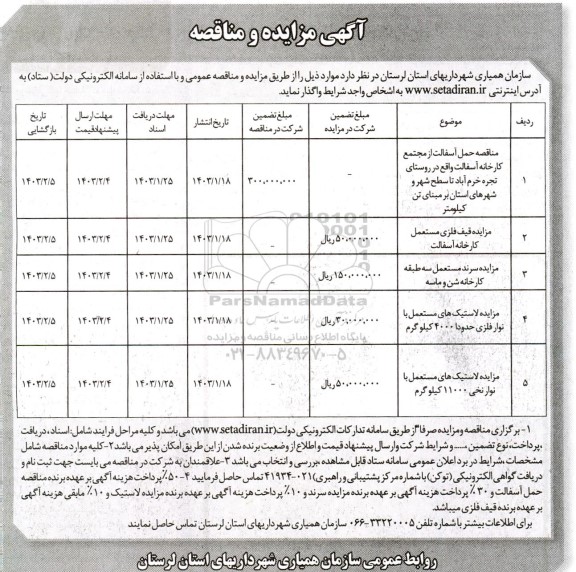 آگهی مزایده و مناقصه
سازمان همیاری شهرداریهای استان لرستان در نظر دارد موارد ذیل را از طریق مزایده و مناقصه عمومی و با استفاده از سامانه الکترونیکی دولت (ستاد) به
آدرس اینترنتی www.setadiran.ir به اشخاص واجد شرایط واگذار نماید.
ردیف موضوع مبلغ تضمین شرکت در مزایده مبلغ تضمین شرکت در مناقصه تاریخ انتشار مهلت دریافت اسناد مهلت ارسال پیشنهاد قیمت تاریخ بازگشایی
۱ مناقصه حمل آسفالت از مجتمع کارخانه آسفالت واقع در روستای تجره خرم آباد تا سطح شهر و شهرهای استان بر مبنای تن کیلومتر - ۳۰۰،۰۰۰،۰۰۰ ۱۴۰۳/۱/۱۸ ۱۴۰۳/۱/۲۵ ۱۴۰۳/۲/۴ ۱۴۰۳/۲/۵
۲ مزایده قیف فلزی مستعمل کارخانه آسفالت ۵۰،۰۰۰،۰۰۰ ریال - ۱۴۰۳/۱/۱۸ ۱۴۰۳/۱/۲۵ ۱۴۰۳/۲/۴ ۱۴۰۳/۲/۵
۳ مزایده سرند مستعمل سه طبقه کارخانه شن و ماسه ۱۵۰،۰۰۰،۰۰۰ ریال - ۱۴۰۳/۱/۱۸ ۱۴۰۳/۱/۲۵ ۱۴۰۳/۲/۴ ۱۴۰۳/۲/۵
۴ مزایده لاستیک های مستعمل با نوار فلزی حدودا ۴۰۰۰ کیلو گرم ۳۰،۰۰۰،۰۰۰ ریال ۱۴۰۳/۱/۱۸ ۱۴۰۳/۱/۲۵ ۱۴۰۳/۲/۴ ۱۴۰۳/۲/۵
۵ مزایده لاستیک های مستعمل با نوار نخی ۱۱۰۰۰ کیلو گرم ۵۰،۰۰۰،۰۰۰ ریال - ۱۴۰۳/۱/۱۸ ۱۴۰۳/۱/۲۵ ۱۴۰۳/۲/۴ ۱۴۰۳/۲/۵
ParsNamadData
پایگاه اطلاع رسانی مناقصه و مزایده
۰۲۱-۸۸۳۴۹۶۷۰-۵
۱- برگزاری مناقصه و مزایده صرفا از طریق سامانه تدارکات الکترونیکی دولت (www.setadiran.ir) می باشد و کلیه مراحل فرایند شامل: اسناد، دریافت
،پرداخت، نوع تضمین .... و شرایط شرکت و ارسال پیشنهاد قیمت و اطلاع از وضعیت برنده شدن از این طریق امکان پذیر می باشد ۲- کلیه موارد مناقصه شامل
مشخصات، شرایط در برد اعلان عمومی سامانه ستاد قابل مشاهده ،بررسی و انتخاب می باشد ۳- علاقمندان به شرکت در مناقصه می بایست جهت ثبت نام و
دریافت گواهی الکترونیکی (توکن) با شماره مرکز پشتیبانی و راهبری) ۰۲۱-۴۱۹۳۴ تماس حاصل فرمایید ۴- ۵۰٪ پرداخت هزینه آگهی بر عهده برنده مناقصه
حمل آسفالت و ۳۰٪ پرداخت هزینه آگهی بر عهده برنده مزایده سرند و ۱۰٪ پرداخت هزینه آگهی بر عهده برنده مزایده لاستیک و ۱۰٪ مابقی هزینه آگهی
بر عهده برنده قیف فلزی میباشد.
برای اطلاعات بیشتر با شماره تلفن ۳۳۲۲۰۰۰۵-۰۶۶ سازمان همیاری شهرداریهای استان لرستان تماس حاصل نمایند
روابط عمومی سازمان همیاری شهرداریهای استان لرستان